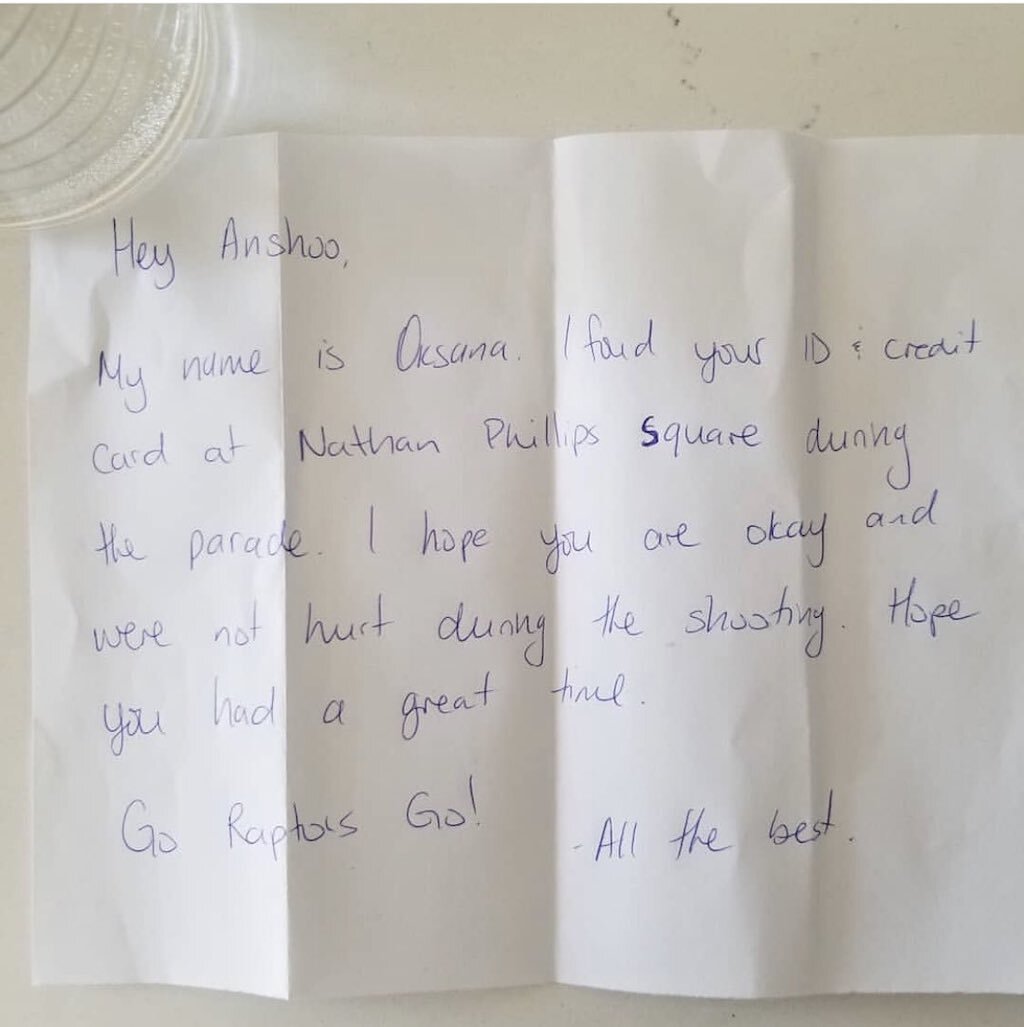 Hey Anshoo,
My name is Oksana. I found your ID & credit
card at Nathan Phillips Square during
the parade. I hope you are okay and
were not hurt during the shooting. Hope
you had a great time.
Go Raptors Go!
- All the best.